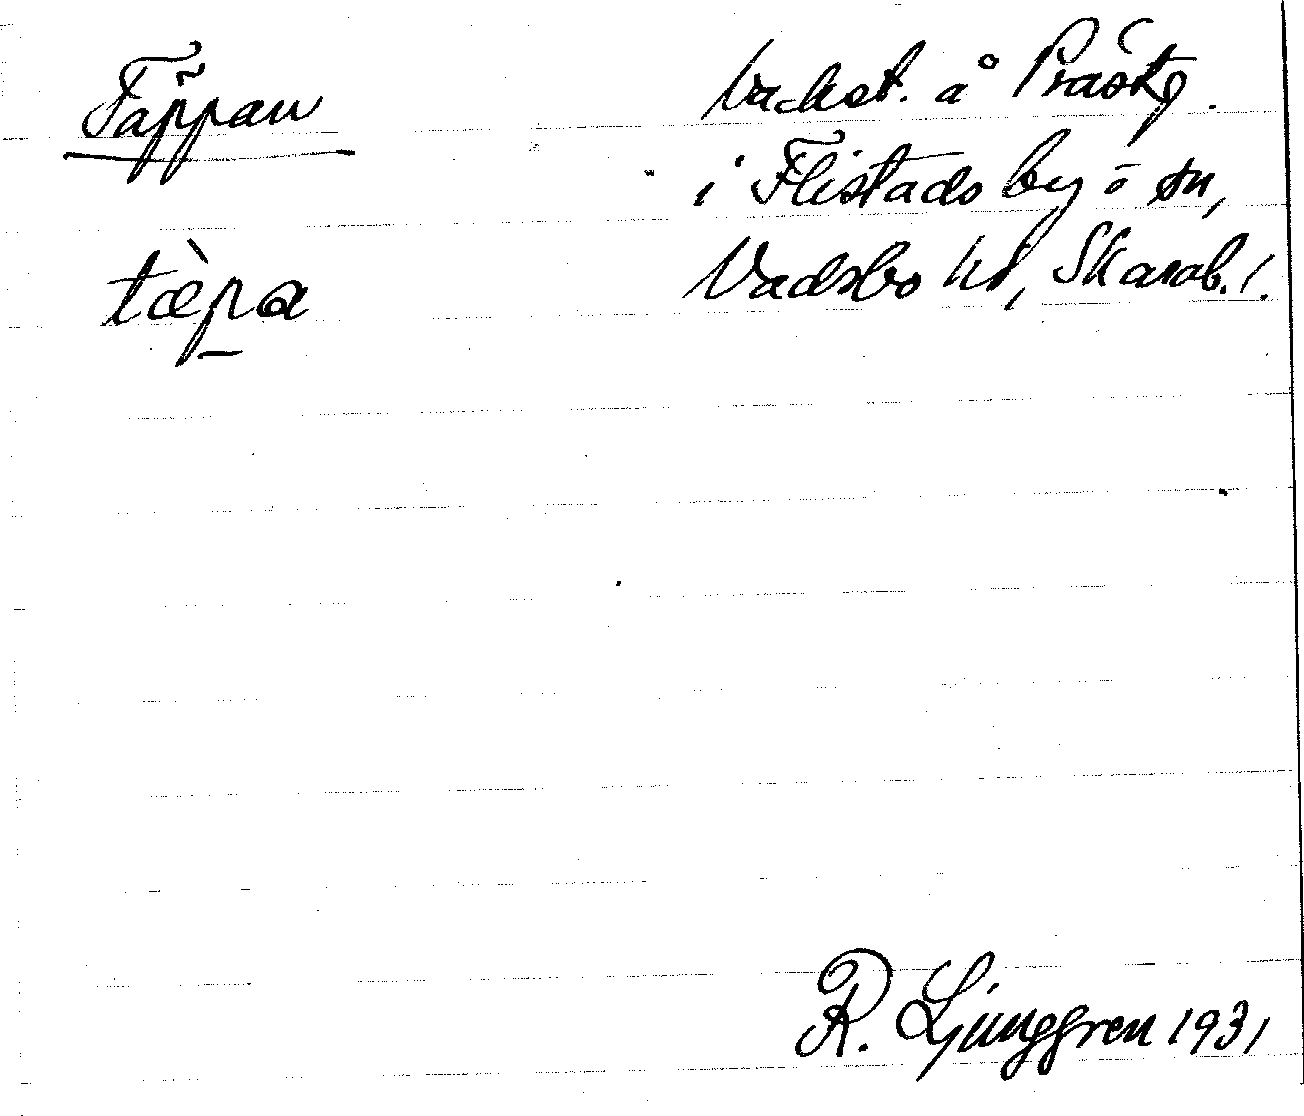 Täppan
tæ̀pa
backst. å Prästg.
i Flistads by o sn,
Vadsbo hd, Skarab. l.
R. Ljunggren 1931